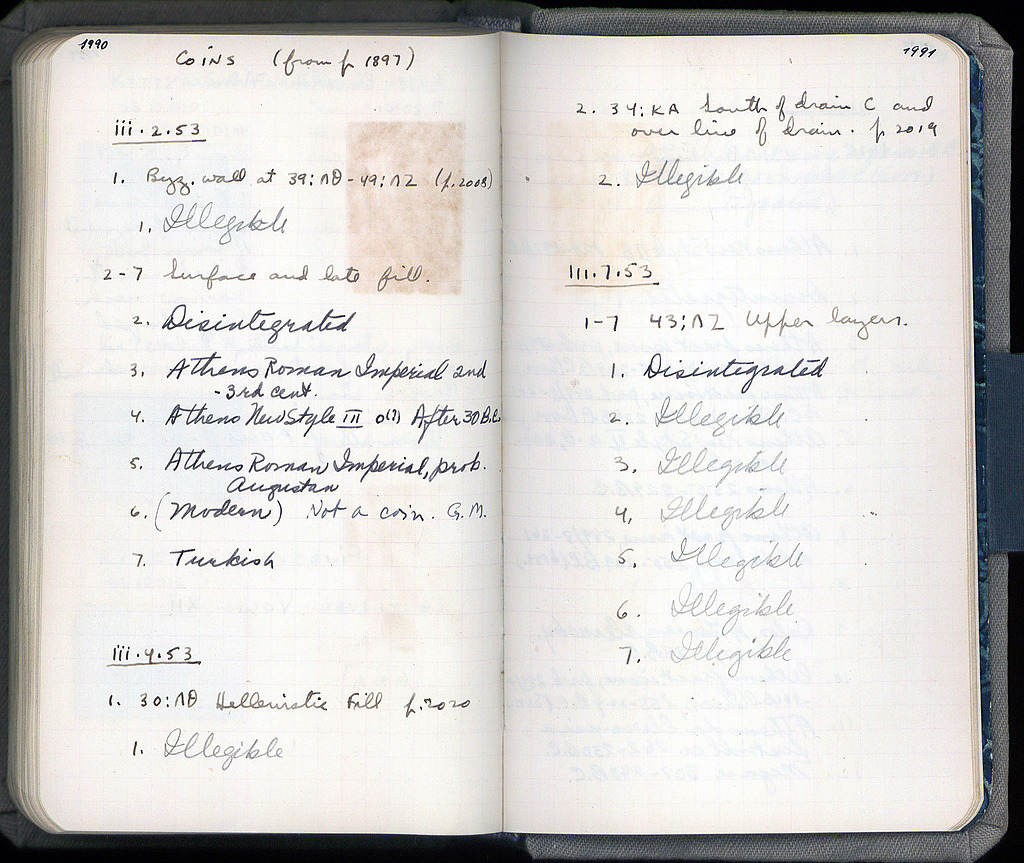 1990
Coins (from p 1897)
iii.2.53
1. Byz. wall at 39:ΛΘ - 49:ΛΖ (p.2008)
1. Illegible
2-7 Surface and late fill.
2. Disintegrated
3. Athens Roman Imperial 2nd
- 3rd cent.
4. Athens New Style III o(?) After 30 B.C.
5. Athens Roman Imperial, prob.
Augustan
6. (Modern) Not a coin. G.M.
7. Turkish
iii.4.53
1. 30:ΛΘ Hellenistic Fill p.2020
1. Illegible
1991
2. 34:KA South of drain C and
over line of drain. p 2019
2. Illegible
III.7.53
1-7 43:ΛΖ Upper layers.
1. Disintegrated
2. Illegible
3. Illegible
4. Illegible
5. Illegible
6. Illegible
7. Illegible